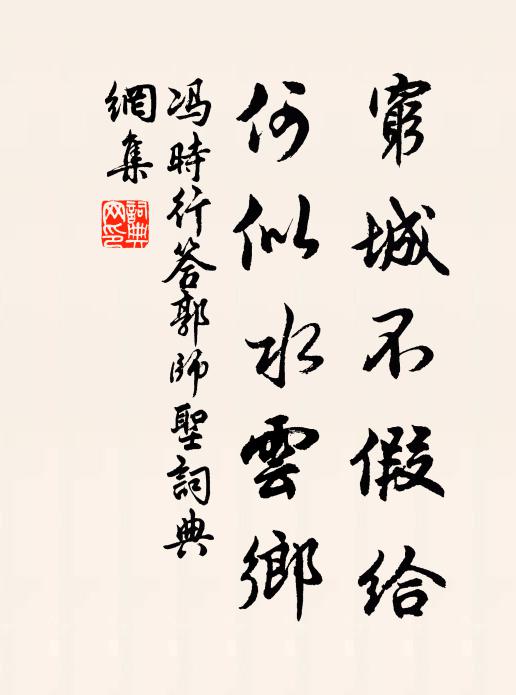 窮城不假給
何似水雲鄉
馮時行答郭師聖詞典
網集
詞典網印